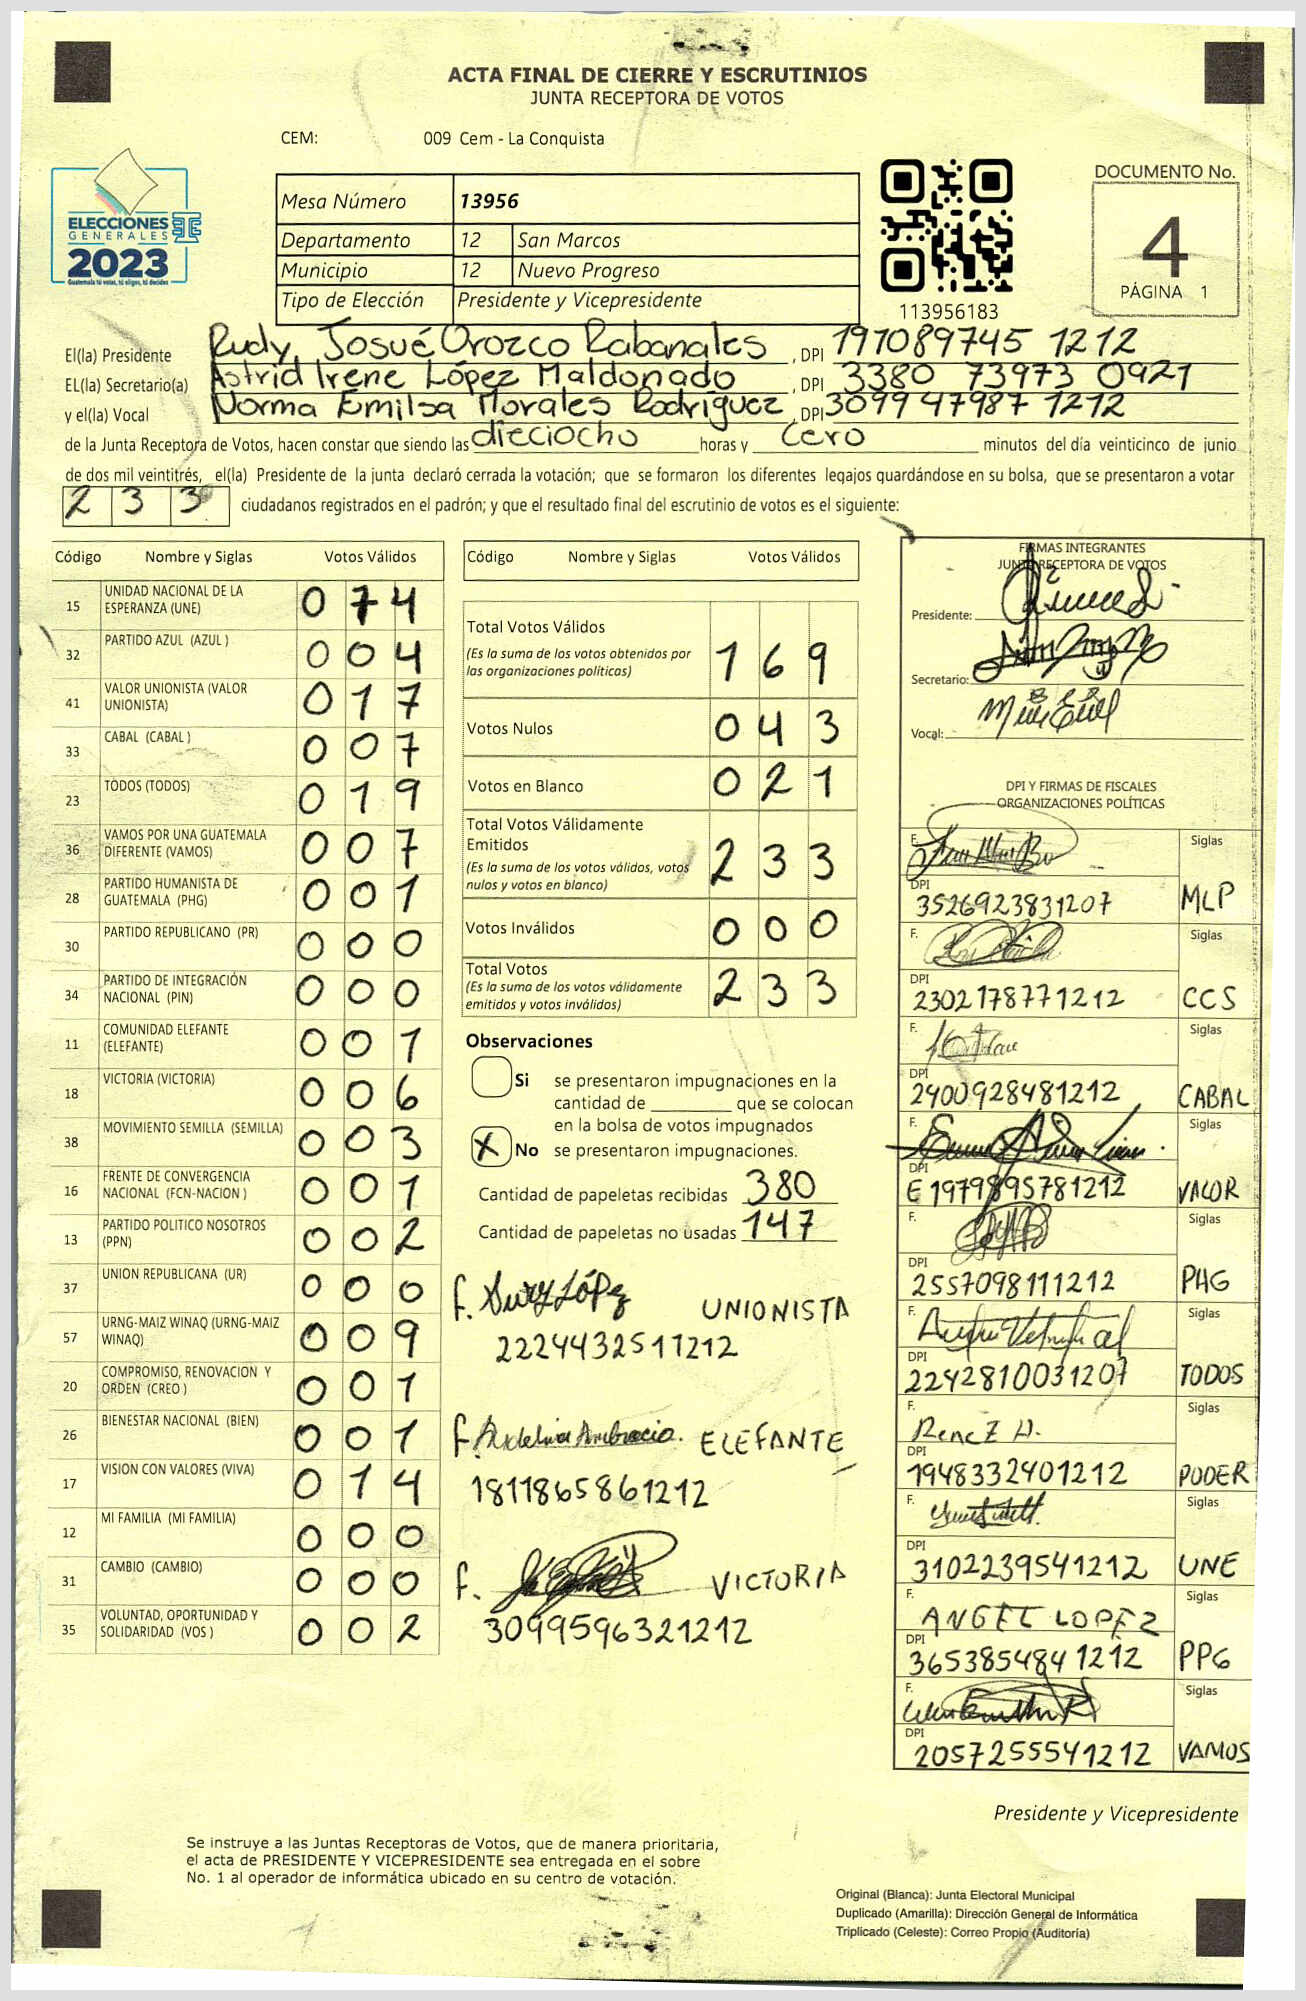 ACTA FINAL DE CIERRE Y ESCRUTINIOS
JUNTA RECEPTORA DE VOTOS
CEM: 009 Cem - La Conquista
ELECCIONES
GENERALES
2023
Guatemala tú votas, tú eliges, tú decides
Mesa Número 13956
Departamento 12 San Marcos
Municipio 12 Nuevo Progreso
Tipo de Elección Presidente y Vicepresidente
113956183
DOCUMENTO No.
4
PÁGINA 1
El(la) Presidente Rudy Josué Orozco Rabanales, DPI 197089745 1212
EL(la) Secretario(a) Astrid Irene López Maldonado, DPI 3380 73973 0921
y el(la) Vocal Norma Emilsa Morales Rodríguez, DPI 3099 47987 1212
de la Junta Receptora de Votos, hacen constar que siendo las dieciocho horas y cero minutos del día veinticinco de junio
de dos mil veintitrés, el(la) Presidente de la junta declaró cerrada la votación; que se formaron los diferentes legajos guardándose en su bolsa, que se presentaron a votar
2 3 3 ciudadanos registrados en el padrón; y que el resultado final del escrutinio de votos es el siguiente:
Código Nombre y Siglas Votos Válidos
15 UNIDAD NACIONAL DE LA ESPERANZA (UNE) 0 7 4
32 PARTIDO AZUL (AZUL ) 0 0 4
41 VALOR UNIONISTA (VALOR UNIONISTA) 0 1 7
33 CABAL (CABAL ) 0 0 7
23 TODOS (TODOS) 0 1 9
36 VAMOS POR UNA GUATEMALA DIFERENTE (VAMOS) 0 0 7
28 PARTIDO HUMANISTA DE GUATEMALA (PHG) 0 0 1
30 PARTIDO REPUBLICANO (PR) 0 0 0
34 PARTIDO DE INTEGRACIÓN NACIONAL (PIN) 0 0 0
11 COMUNIDAD ELEFANTE (ELEFANTE) 0 0 1
18 VICTORIA (VICTORIA) 0 0 6
38 MOVIMIENTO SEMILLA (SEMILLA) 0 0 3
16 FRENTE DE CONVERGENCIA NACIONAL (FCN-NACION ) 0 0 1
13 PARTIDO POLITICO NOSOTROS (PPN) 0 0 2
37 UNION REPUBLICANA (UR) 0 0 0
57 URNG-MAIZ WINAQ (URNG-MAIZ WINAQ) 0 0 9
20 COMPROMISO, RENOVACION Y ORDEN (CREO ) 0 0 1
26 BIENESTAR NACIONAL (BIEN) 0 0 1
17 VISION CON VALORES (VIVA) 0 1 4
12 MI FAMILIA (MI FAMILIA) 0 0 0
31 CAMBIO (CAMBIO) 0 0 0
35 VOLUNTAD, OPORTUNIDAD Y SOLIDARIDAD (VOS ) 0 0 2
Código Nombre y Siglas Votos Válidos
Total Votos Válidos
(Es la suma de los votos obtenidos por
las organizaciones políticas) 1 6 9
Votos Nulos 0 4 3
Votos en Blanco 0 2 1
Total Votos Válidamente
Emitidos
(Es la suma de los votos válidos, votos
nulos y votos en blanco) 2 3 3
Votos Inválidos 0 0 0
Total Votos
(Es la suma de los votos válidamente
emitidos y votos inválidos) 2 3 3
Observaciones
Si se presentaron impugnaciones en la
cantidad de ________ que se colocan
en la bolsa de votos impugnados
X No se presentaron impugnaciones.
Cantidad de papeletas recibidas 380
Cantidad de papeletas no usadas 147
f. Sury López UNIONISTA
2224432511212
f. Audelina Ambrocio. ELEFANTE
1811865861212
f. VICTORIA
3099596321212
FIRMAS INTEGRANTES
JUNTA RECEPTORA DE VOTOS
Presidente:
Secretario:
Vocal:
DPI Y FIRMAS DE FISCALES
ORGANIZACIONES POLÍTICAS
F. Siglas
DPI 3526923831207 MLP
F. Siglas
DPI 2302178771212 CCS
F. Siglas
DPI 2400928481212 CABAL
F. Siglas
DPI E 1979895781212 VALOR
F. Siglas
DPI 2557098111212 PHG
F. Siglas
DPI 2242810031207 TODOS
F. Siglas
DPI 1948332401212 PODER
F. Siglas
DPI 3102239541212 UNE
F. ANGEL LOPEZ Siglas
DPI 3653854841212 PPG
F. Siglas
DPI 2057255541212 VAMOS
Presidente y Vicepresidente
Se instruye a las Juntas Receptoras de Votos, que de manera prioritaria,
el acta de PRESIDENTE Y VICEPRESIDENTE sea entregada en el sobre
No. 1 al operador de informática ubicado en su centro de votación.
Original (Blanca): Junta Electoral Municipal
Duplicado (Amarilla): Dirección General de Informática
Triplicado (Celeste): Correo Propio (Auditoría)